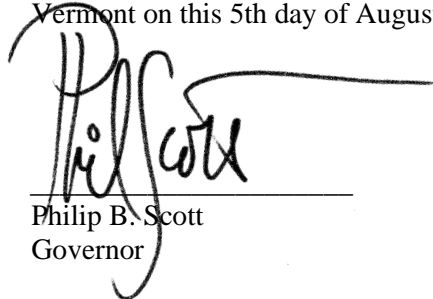 Vermont on this 5th day of Augus
Phil Scott
Philip B. Scott
Governor